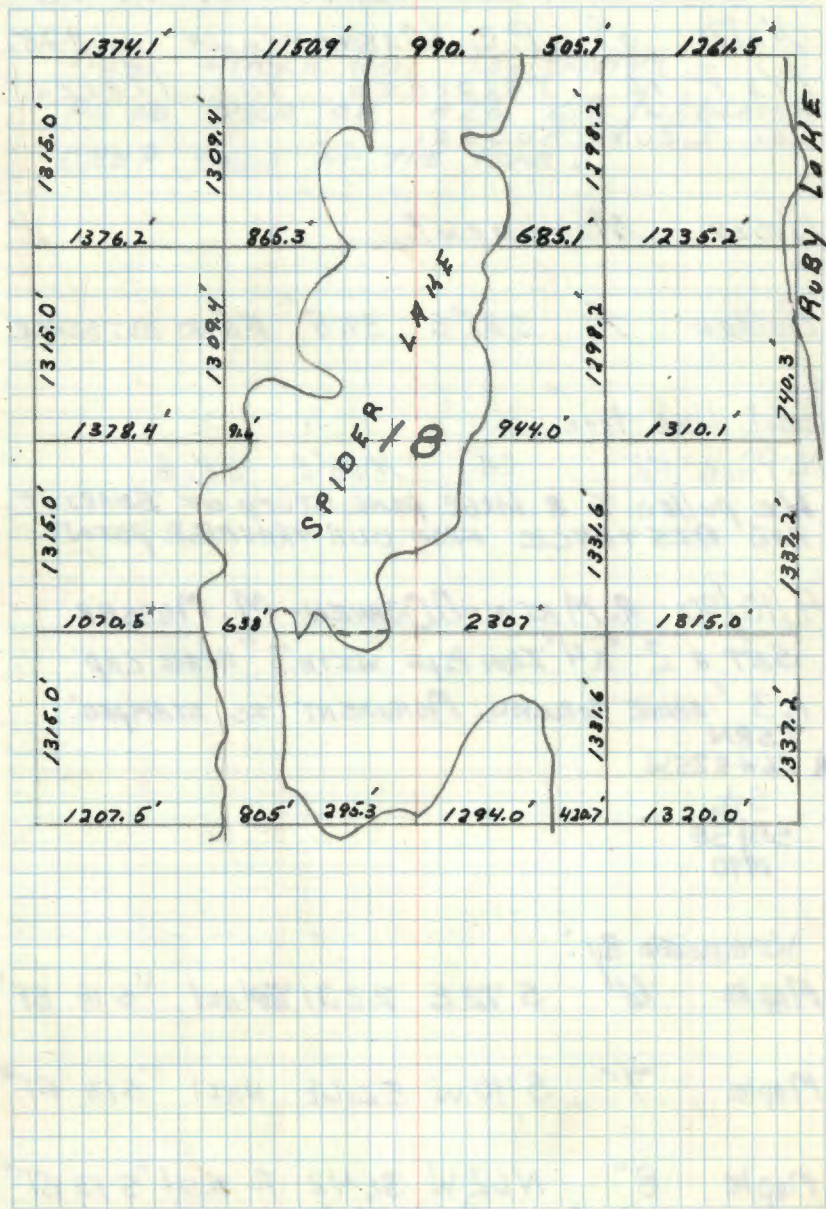 1374.1' 1150.9' 990.' 505.7' 1261.5'
1316.0'
1309.4'
1298.2'
RUBY LAKE
1376.2' 865.3' 685.1' 1235.2'
LAKE
1316.0'
1309.4'
1298.2'
740.3'
1378.4' 944.0' 1310.1'
SPIDER
18
1315.0'
1331.6'
1337.2'
1070.5' 638' 2307' 1315.0'
1315.0'
1331.6'
1337.2'
1207.5' 805' 295.3' 1294.0' 420.7' 1320.0'